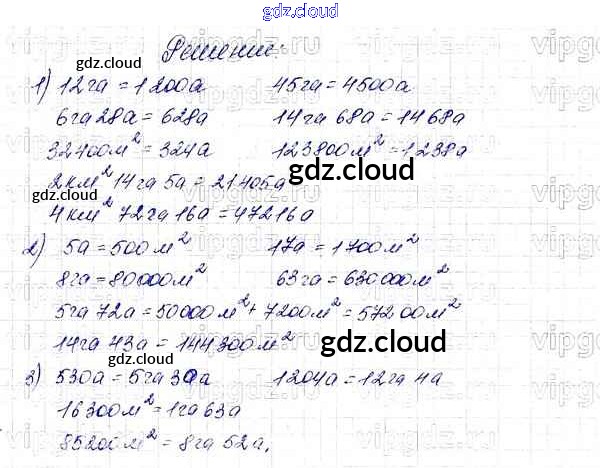 gdz.cloud
Решение:
1) 12га = 1200а 45га = 4500а
6га 28а = 628а 14га 68а = 1468а
32400м² = 324а 123800м² = 1238а
gdz.cloud
2км² 14га 5а = 21405а
gdz.cloud
4км² 72га 16а = 47216а
2) 5а = 500м² 17а = 1700м²
8га = 80000м² 63га = 630000м²
5га 72а = 50000м² + 7200м² = 57200м²
14га 43а = 144300м²
gdz.cloud
gdz.cloud
3) 530а = 5га 30а 1204а = 12га 4а
16300м² = 1га 63а
85200м² = 8га 52а.